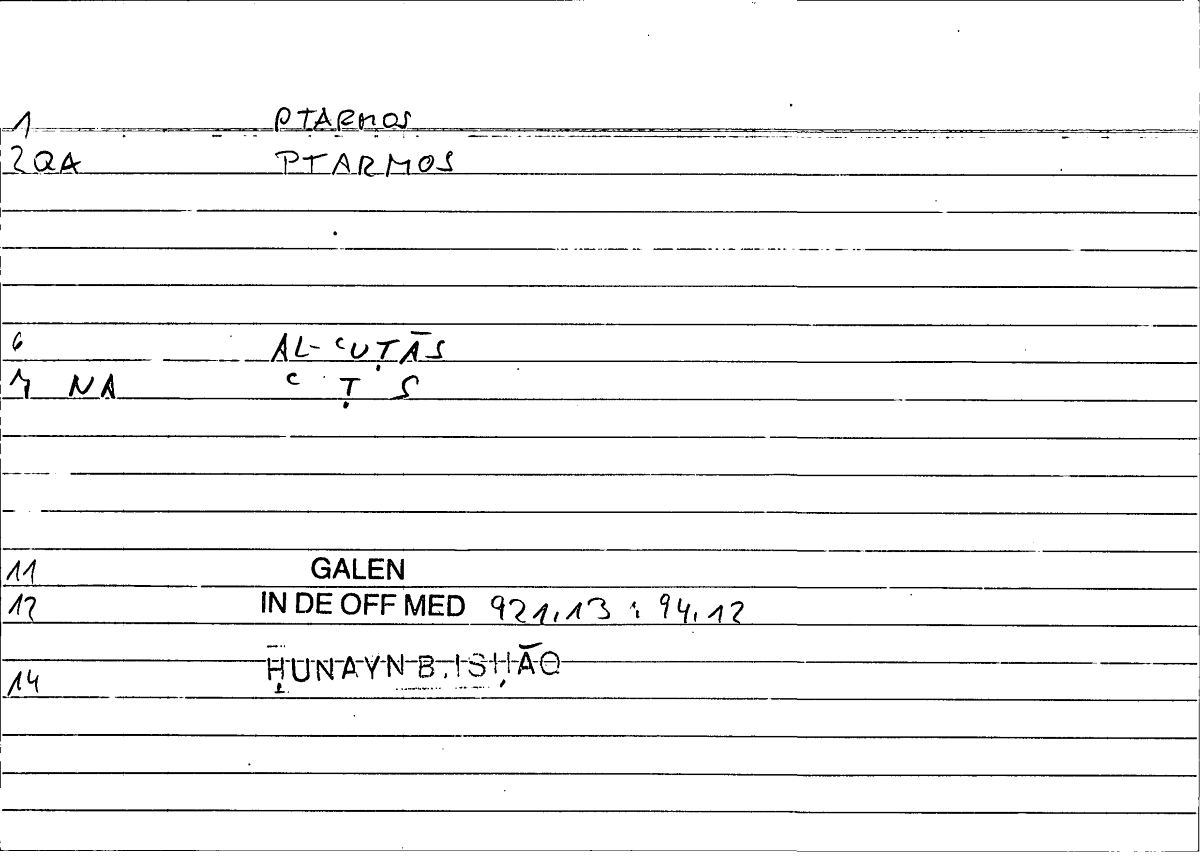 1 PTARMOS
2QA PTARMOS
6 AL-ʿUṬĀS
7 NA ʿ Ṭ S
11 GALEN
12 IN DE OFF MED 921,13 ; 94,12
14 ḤUNAYN B. ISḤĀQ